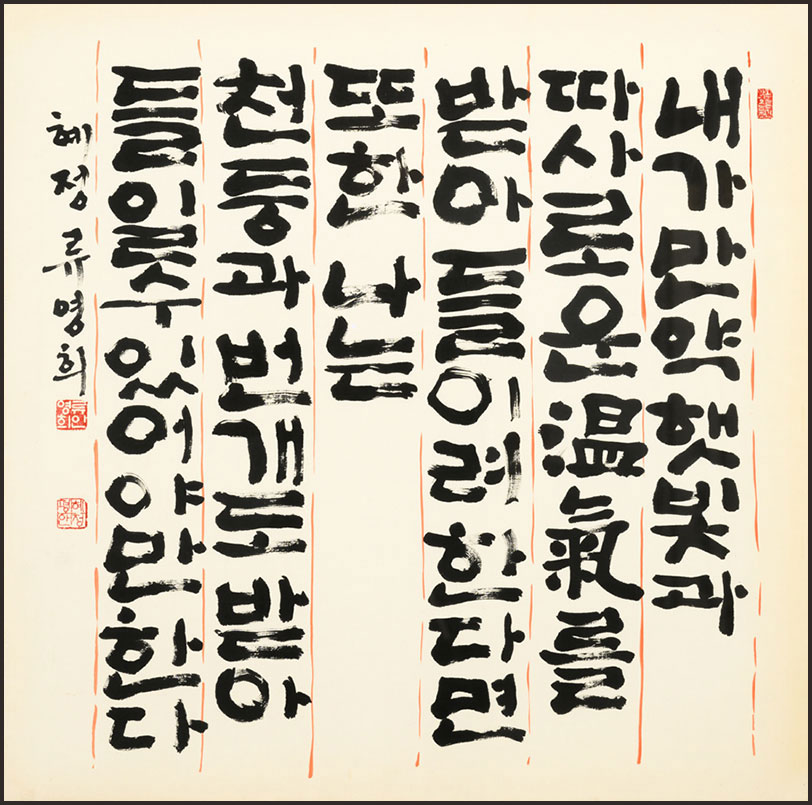 내가 만약 햇빛과
따사로운 温氣를
받아 들이려 한다면
또한 나는
천둥과 번개도 받아
들일수 있어야만 한다
혜정 류영희